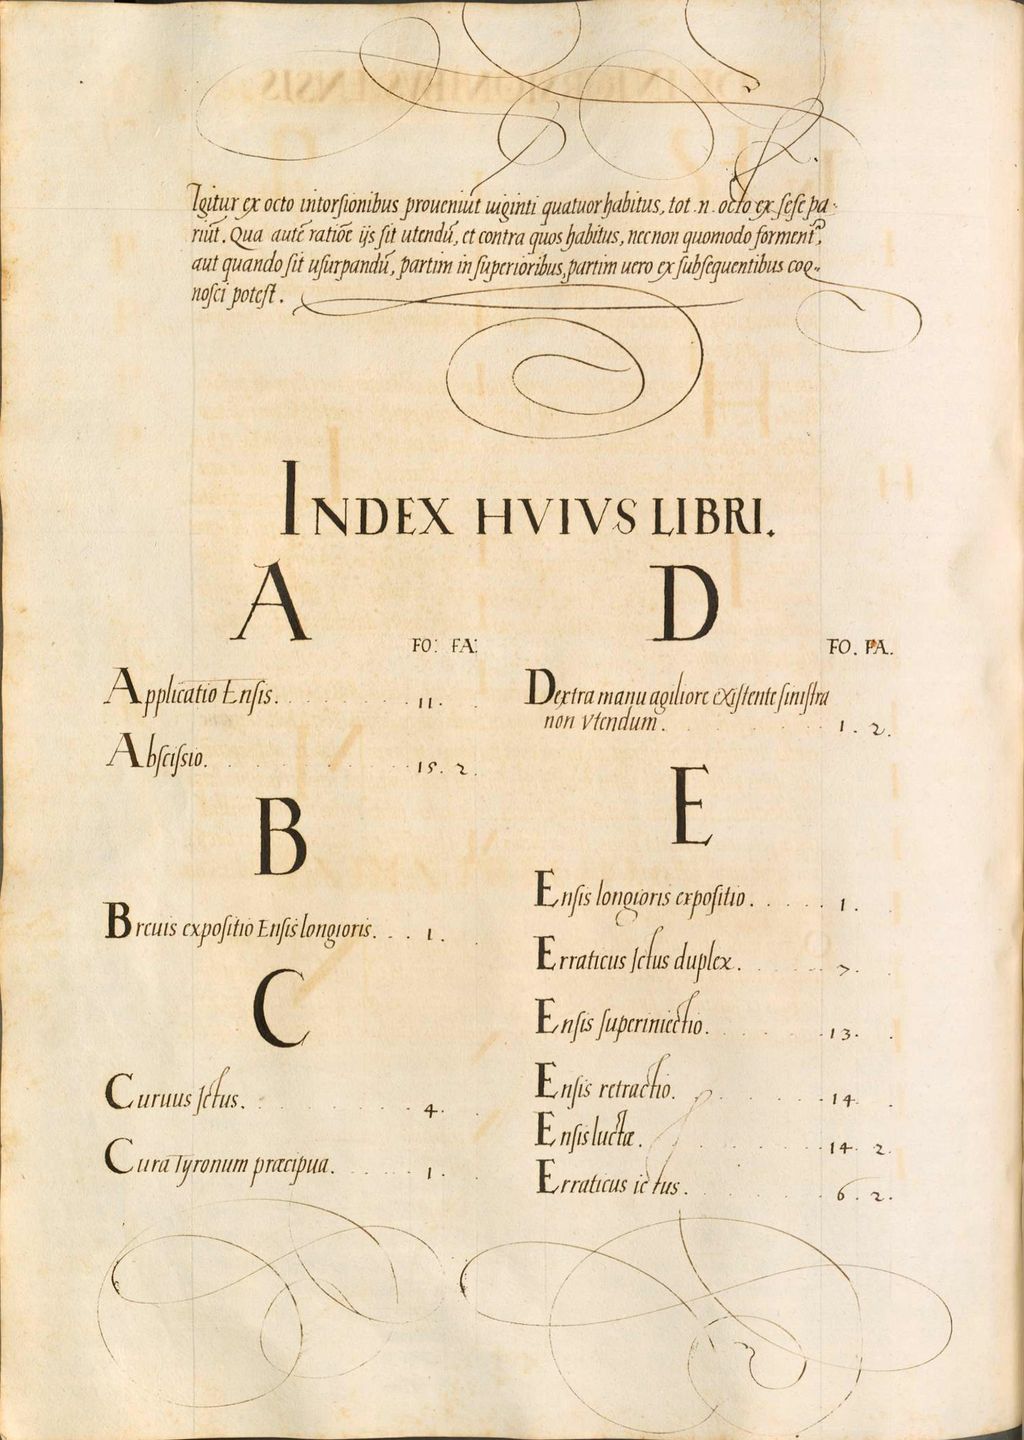 Igitur ex octo intorsionibus proueniūt uiginti quatuor habitus, tot .n. octo ex sese pa-
riūt. Qua autē ratiōe ijs sit utendū, et contra quos habitus, necnon quomodo forment',
aut quando sit usurpandū, partim in superioribus, partim uero ex subsequentibus cog-
nosci potest.
INDEX HVIVS LIBRI.
A
FO: FA:
Applicatio Ensis. 11.
Abscissio. 15. 2.
B
Breuis expositio Ensis longioris. 1.
C
Curuus Ictus. 4.
Cura Tyronum præcipua. 1.
D
FO. FA.
Dextra manu agiliore existente sinistra
non vtendum. 1. 2.
E
Ensis longioris expositio. 1.
Erraticus Ictus duplex. 7.
Ensis superiniectio. 13.
Ensis retractio. 14
Ensis luctæ. 14. 2.
Erraticus ictus. 6. 2.